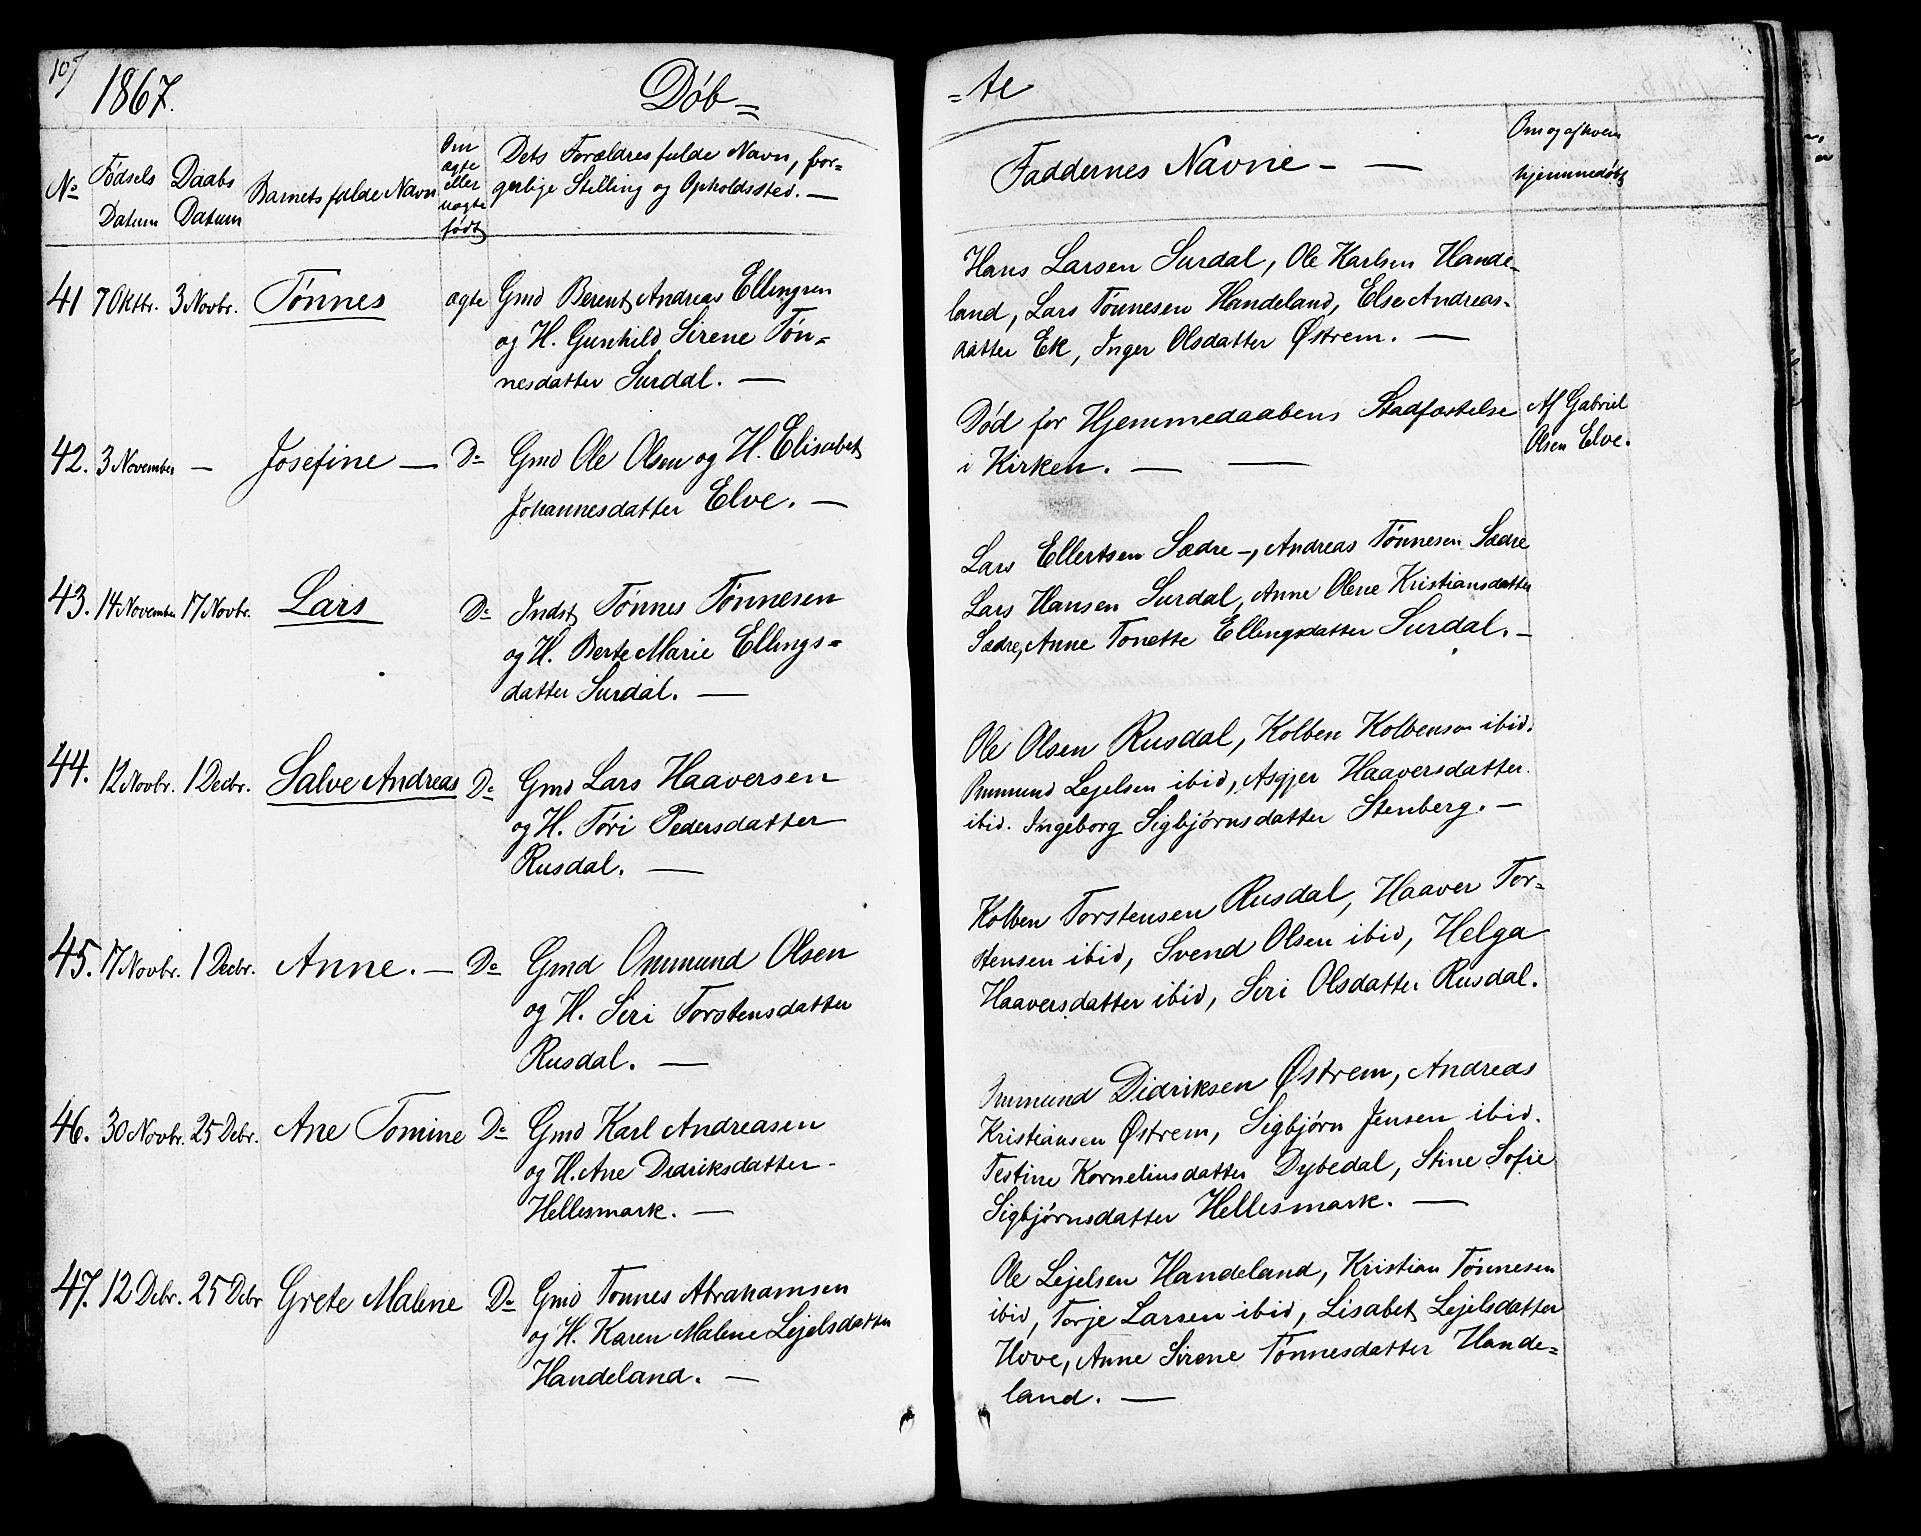 107
1867.
Døb=
=te
No
Fødsels Datum
Daabs Datum
Barnets fulde Navn
Om ægte eller uægte født
Dets Forældres fulde Navn, bor-
gerlige Stilling og Opholdssted. —
Faddernes Navne — —
Om og af hvem
hjemmedøbt
41 7 Oktbr. 3 Novbr. Tønnes ægte Gmd Berent Andreas Ellingsen
og H. Gunhild Sirene Tøn=
nesdatter Surdal. —
Hans Larsen Surdal, Ole Karlsen Hande-
land, Lars Tønnesen Handeland, Else Andreas-
datter Ek, Inger Olsdatter Østrem. —
42. 3 November — Josefine — Do Gmd Ole Olsen og H. Elisabet
Johannesdatter Elve. —
Død før Hjemmedaabens Stadfæstelse
i Kirken. — —
Af Gabriel
Olsen Elve.
43. 14 November 17 Novbr. Lars Do Indst Tønnes Tønnesen
og H. Berte Marie Ellings=
datter Surdal. —
Lars Ellertsen Sædre —, Andreas Tønnesen Sædre
Lars Hansen Surdal, Anne Olene Kristiansdatter
Sædre, Anne Tonette Ellingsdatter Surdal. —
44. 12 Novbr. 1 Decbr. Salve Andreas Do Gmd Lars Haaversen
og H. Tøri Pedersdatter
Rusdal. —
Ole Olsen Rusdal, Kolben Kolbensen ibid.
Ommund Lejelsen ibid, Asgjer Haaversdatter
ibid. Ingeborg Sigbjørnsdatter Stenberg. —
45. 17 Novbr. 1 Decbr. Anne. — Do Gmd Ommund Olsen
og H. Siri Torstensdatter
Rusdal. —
Kolben Torstensen Rusdal, Haaver Tor-
stensen ibid, Svend Olsen ibid, Helga
Haaversdatter ibid, Siri Olsdatter Rusdal.
46. 30 Novbr. 25 Debr. Ane Tomine Do Gmd Karl Andreasen
og H. Ane Didriksdatter
Hellesmark. —
Ommund Didriksen Østrem, Andreas
Kristiansen Østrem, Sigbjørn Jensen ibid.
Testine Korneliusdatter Dybedal, Stine Sofie
Sigbjørnsdatter Hellesmark. —
47. 12 Debr. 25 Debr Grete Malene Do Gmd Tonnes Abrahamsen
og H. Karen Malene Lejelsdatter
Handeland. —
Ole Lejelsen Handeland, Kristian Tønnesen
ibid, Torje Larsen ibid, Lisabet Lejelsdatter
Hove, Anne Sirene Tønnesdatter Hande=
land. —